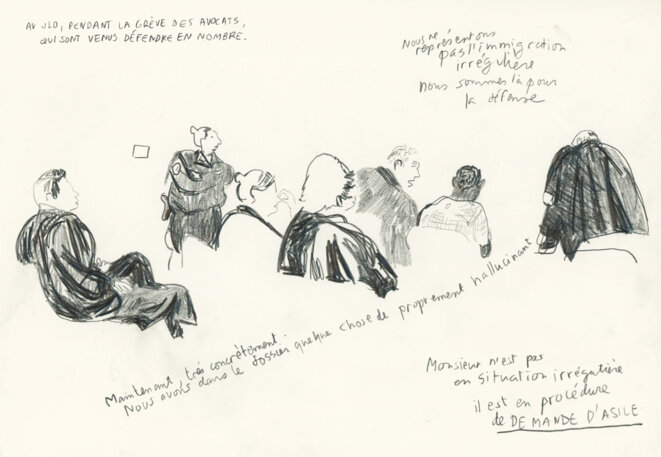 AU JLD, PENDANT LA GRÈVE DES AVOCATS,
QUI SONT VENUS DÉFENDRE EN NOMBRE.
Nous ne
représentons
pas l'immigration
irrégulière
nous sommes là pour
la défense
Maintenant très concrètement.
Nous avons dans le dossier quelque chose de proprement hallucinant
Monsieur n'est pas
en situation irrégulière
il est en procédure
de DEMANDE D'ASILE